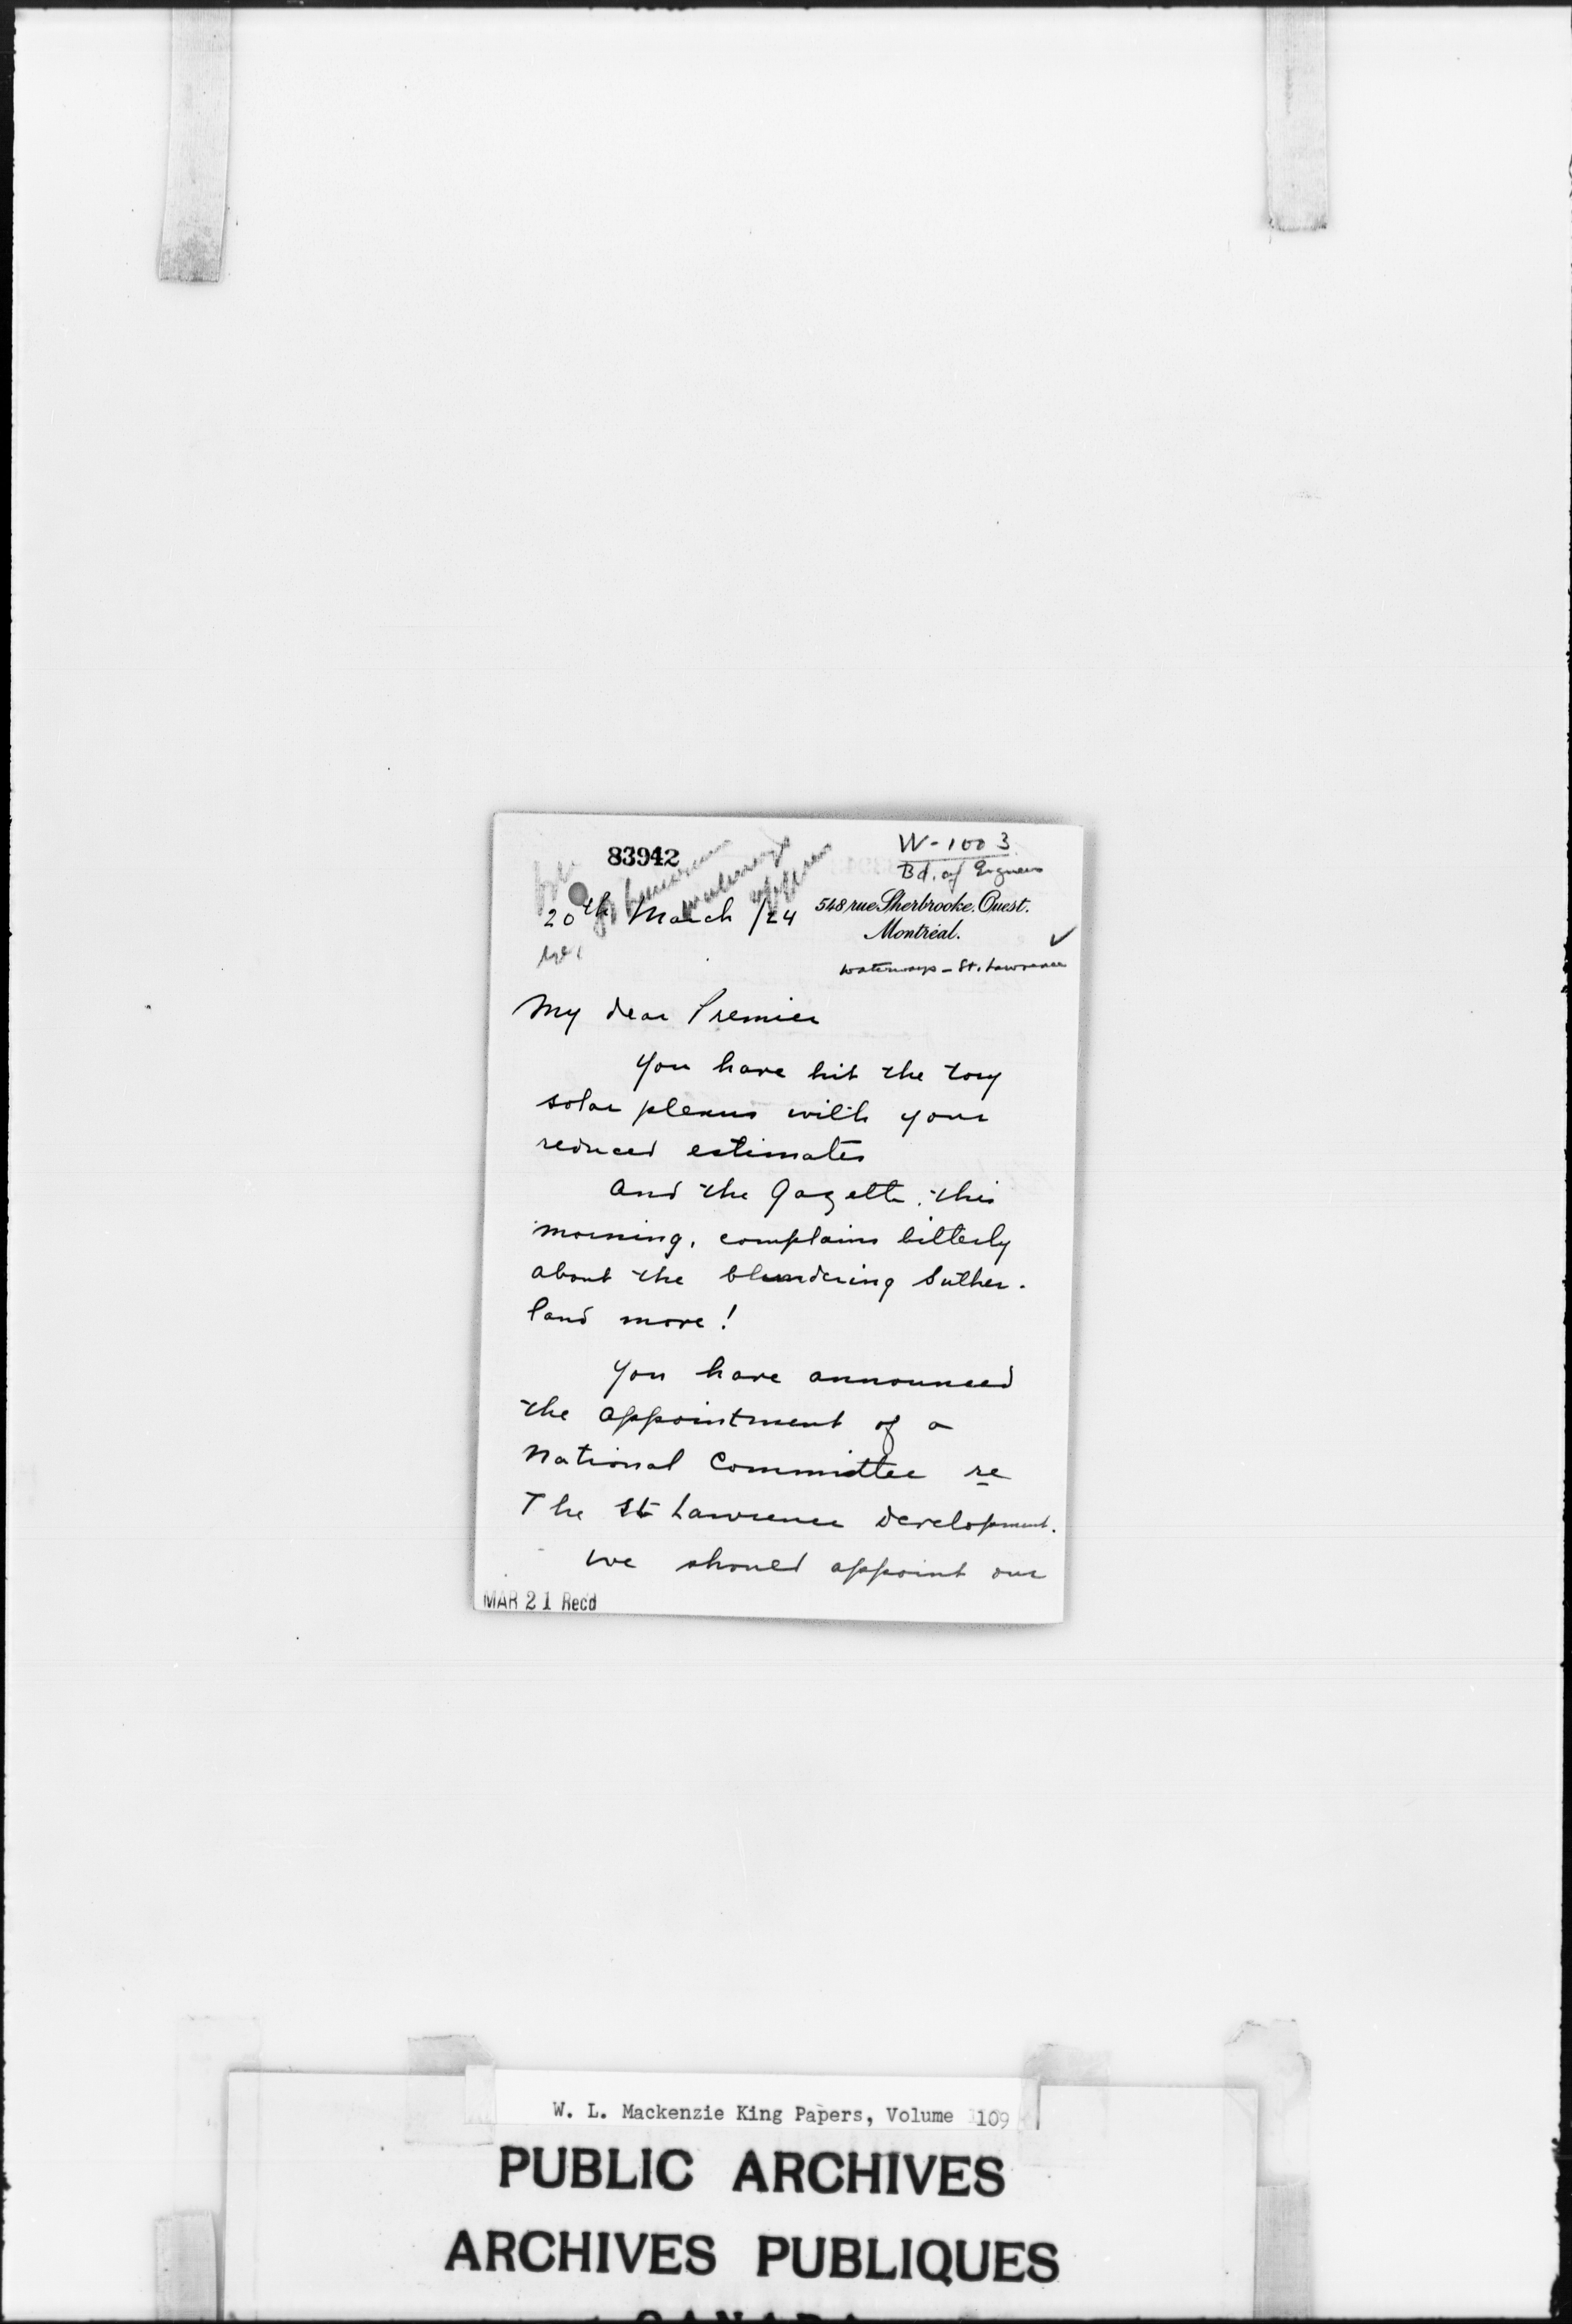 83942
W-1003
Bd. of Engineers
20th March /24
548, rue Sherbrooke. Ouest.
Montréal.
Waterways - St. Lawrence
My dear Premier
You have hit the tory
solar plexus with your
reduced estimates
And the Gazette, this
morning, complains bitterly
about the blundering Suther-
land more!
You have announced
the appointment of a
National Committee re
The St Lawrence Development.
We should appoint our
MAR 21 Rec'd
W. L. Mackenzie King Papers, Volume 109
PUBLIC ARCHIVES
ARCHIVES PUBLIQUES
CANADA